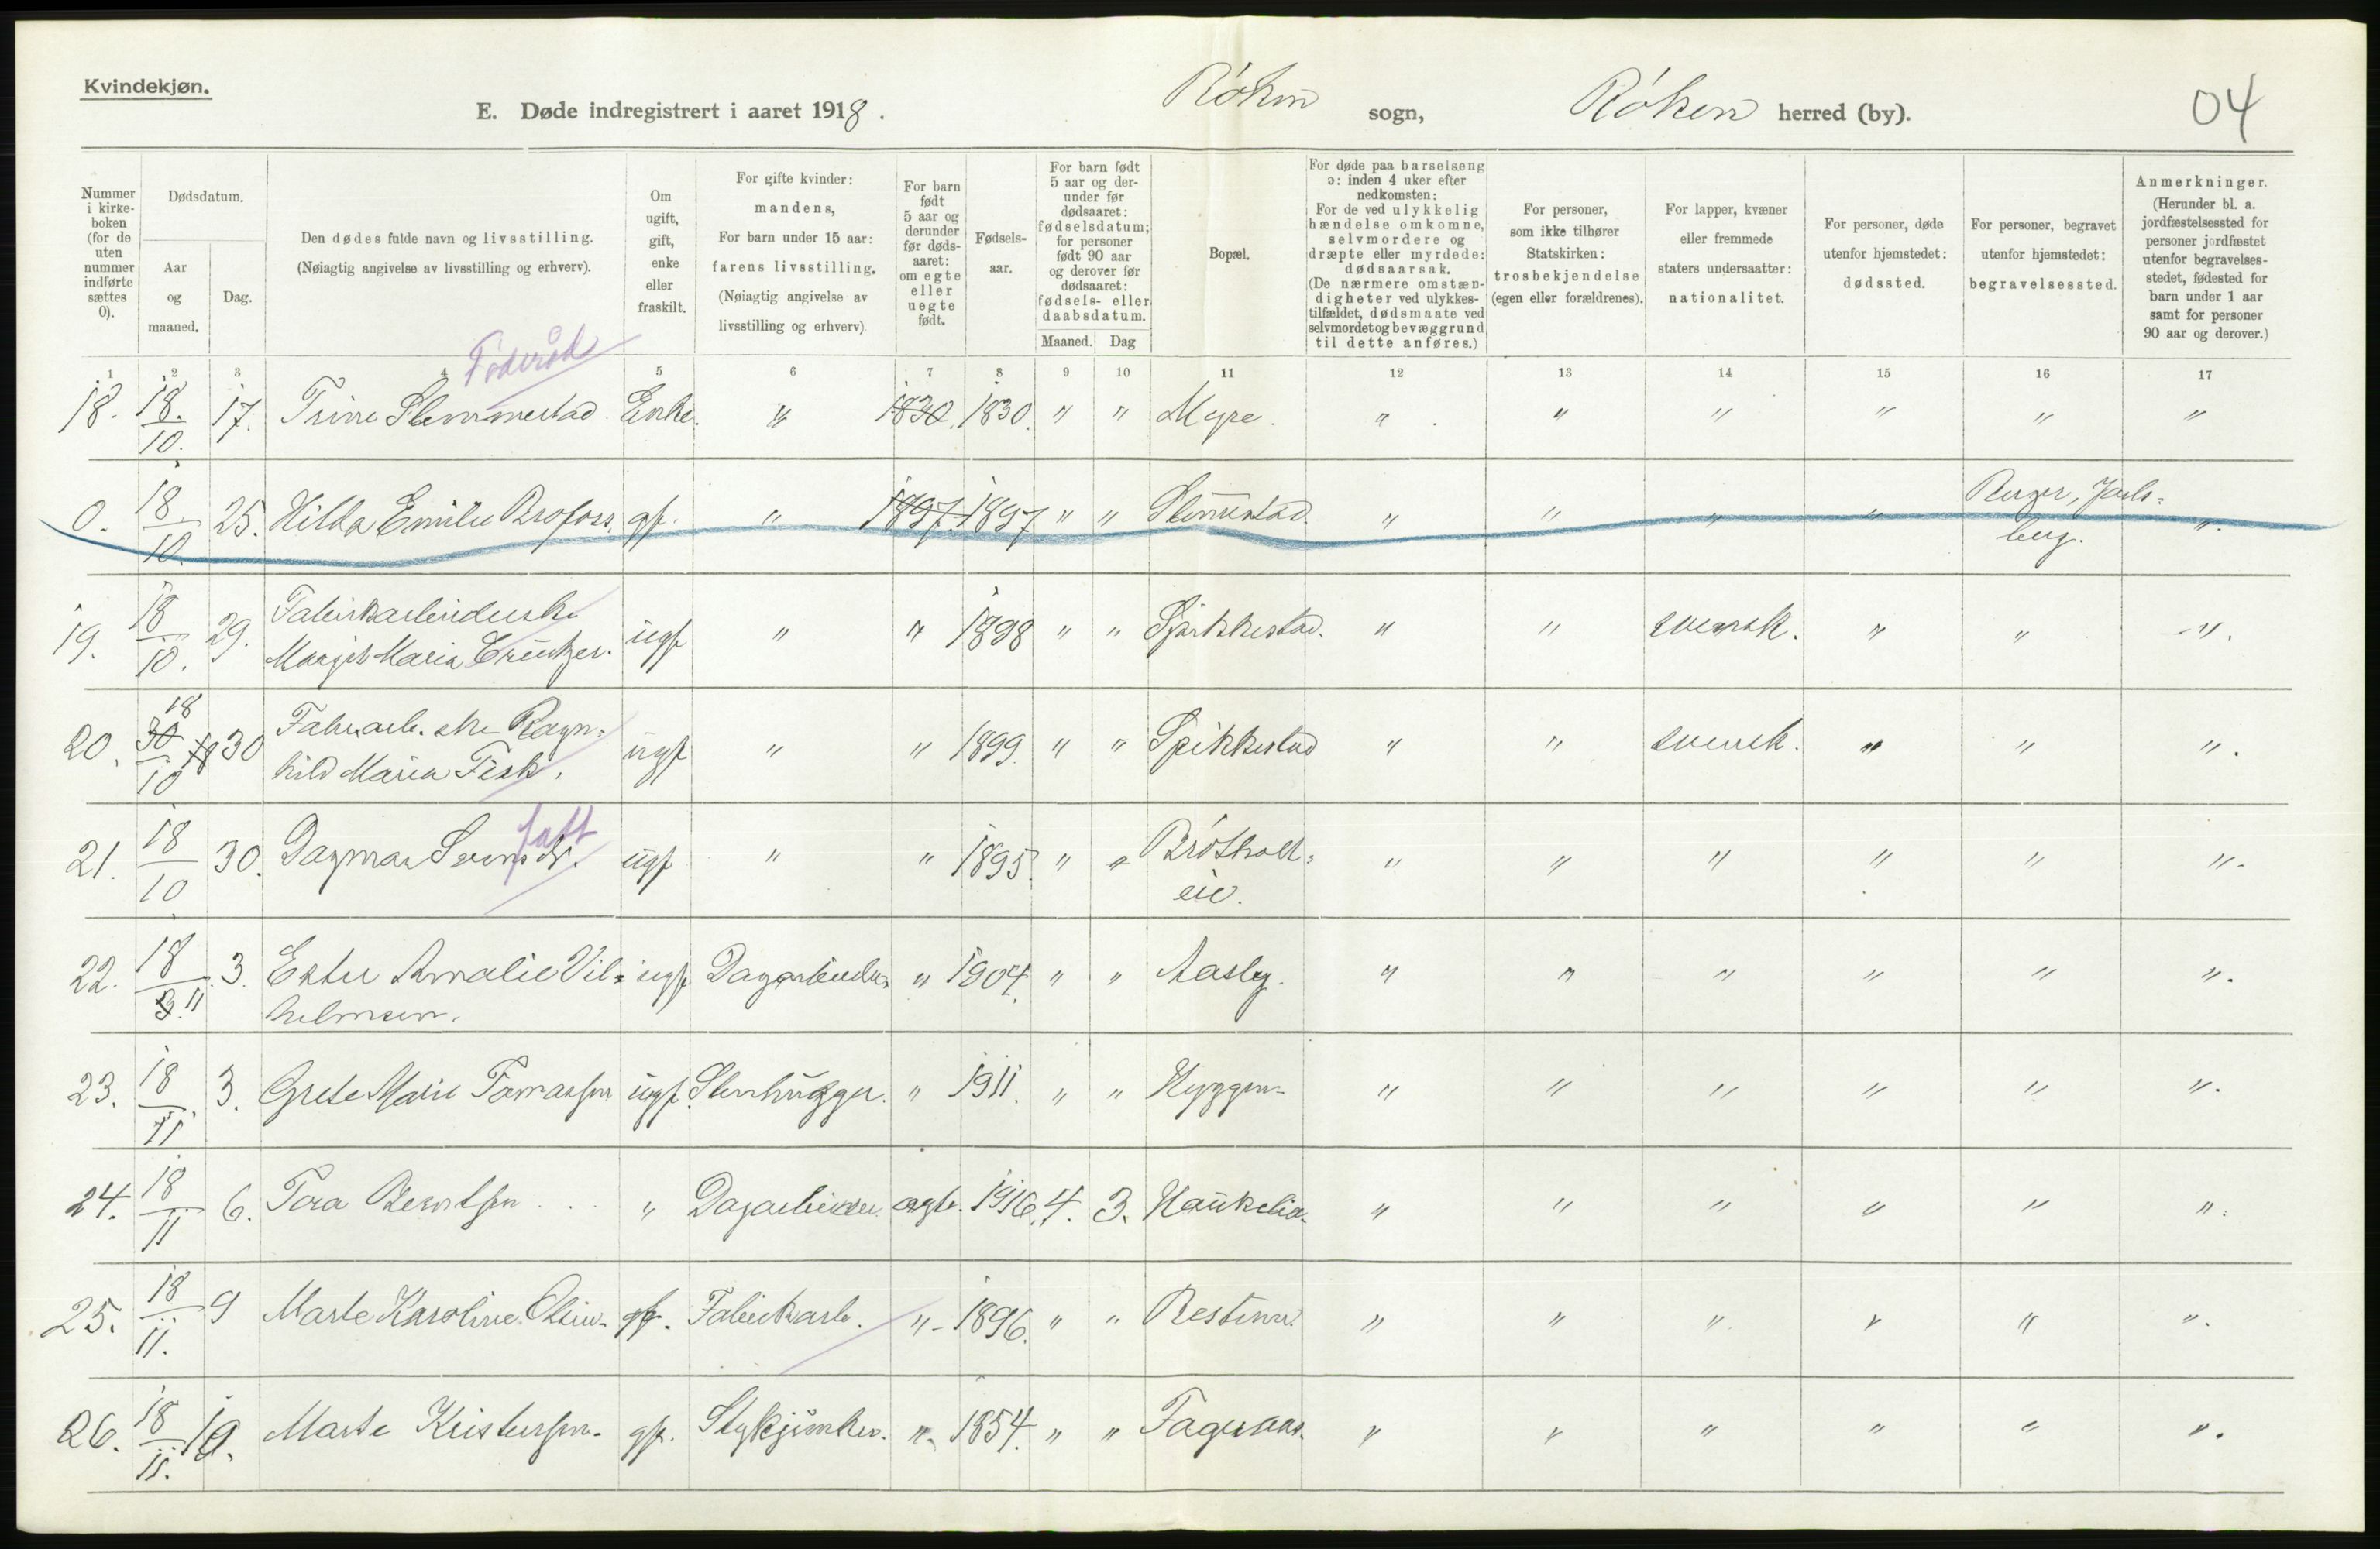 Kvindekjøn.
E. Døde indregistrert i aaret 1918. Røken sogn, Røken herred (by). 04
Nummer i kirke-boken (for de uten nummer indførte sættes 0).
Dødsdatum.
Aar og maaned.
Dag.
Den dødes fulde navn og livsstilling.
(Nøiagtig angivelse av livsstilling og erhverv).
Om ugift, gift, enke eller fraskilt.
For gifte kvinder: mandens,
For barn under 15 aar: farens livsstilling.
(Nøiagtig angivelse av livsstilling og erhverv)
For barn født 5 aar og derunder før døds-aaret: om egte eller uegte født.
Fødsels-aar.
For barn født 5 aar og der-under før dødsaaret: fødselsdatum; for personer født 90 aar og derover før dødsaaret: fødsels- eller daabsdatum.
Maaned. Dag
Bopæl.
For døde paa barselseng ɔ: inden 4 uker efter nedkomsten: For de ved ulykkelig hændelse omkomne, selvmordere og dræpte eller myrdede: dødsaarsak. (De nærmere omstæn-digheter ved ulykkes-tilfældet, dødsmaate ved selvmordet og bevæggrund til dette anføres.)
For personer, som ikke tilhører Statskirken: trosbekjendelse (egen eller forældrenes).
For lapper, kvæner eller fremmede staters undersaatter: nationalitet.
For personer, døde utenfor hjemstedet: dødssted.
For personer, begravet utenfor hjemstedet: begravelsessted.
Anmerkninger. (Herunder bl. a. jordfæstelsessted for personer jordfæstet utenfor begravelses-stedet, fødested for barn under 1 aar samt for personer 90 aar og derover.)
1 2 3 4 5 6 7 8 9 10 11 12 13 14 15 16 17
Føderåd
18. 18/10. 17. Trine Slemmestad Enke. " 1830. 1830. " " Myre. " " " " " "
0. 18/10. 25. Hilda Emilie Brofoss. gf. " 1897. 1897 " " Slemestad. " " " " Ruger, Jarls= ".
berg.
19. 18/10. 29. Fabrikarbeiderske ugf " " 1898 " " Spikkestad. " " svensk. " " ".
Margit Maria Creutzer.
20. 18 30/10 18 30 Fabr.arb.ske Ragn= ugf " " 1899. " " Spikkestad " " svensk. " " ".
hild Maria Fisk.
fatt
21. 18/10 30. Dagmar Svensdr. ugf " " 1895. " " Brøtholt= " " " " " ".
eie.
22. 18/11 3. Ester Amalie Vil= ugf Dagarbeider " 1904. " " Aasby. " " " " " ".
helmsen.
23. 18/11. 3. Grete Marie Tomassen ugf. Stenhugger. " 1911. " " Hyggen " " " " " ".
24. 18/11 6. Tora Berntsen " Dagarbeider. egte. 1916. 4. 3. Haukelia. " " " " " ".
25. 18/11. 9 Marte Karoline Olsen. gf. Fabrikarb. " 1896. " " Bestum. " " " " " ".
26. 18/11. 10. Marte Kristensen. gf. Stykjunker. " 1854. " " Fageraas. " " " " " ".